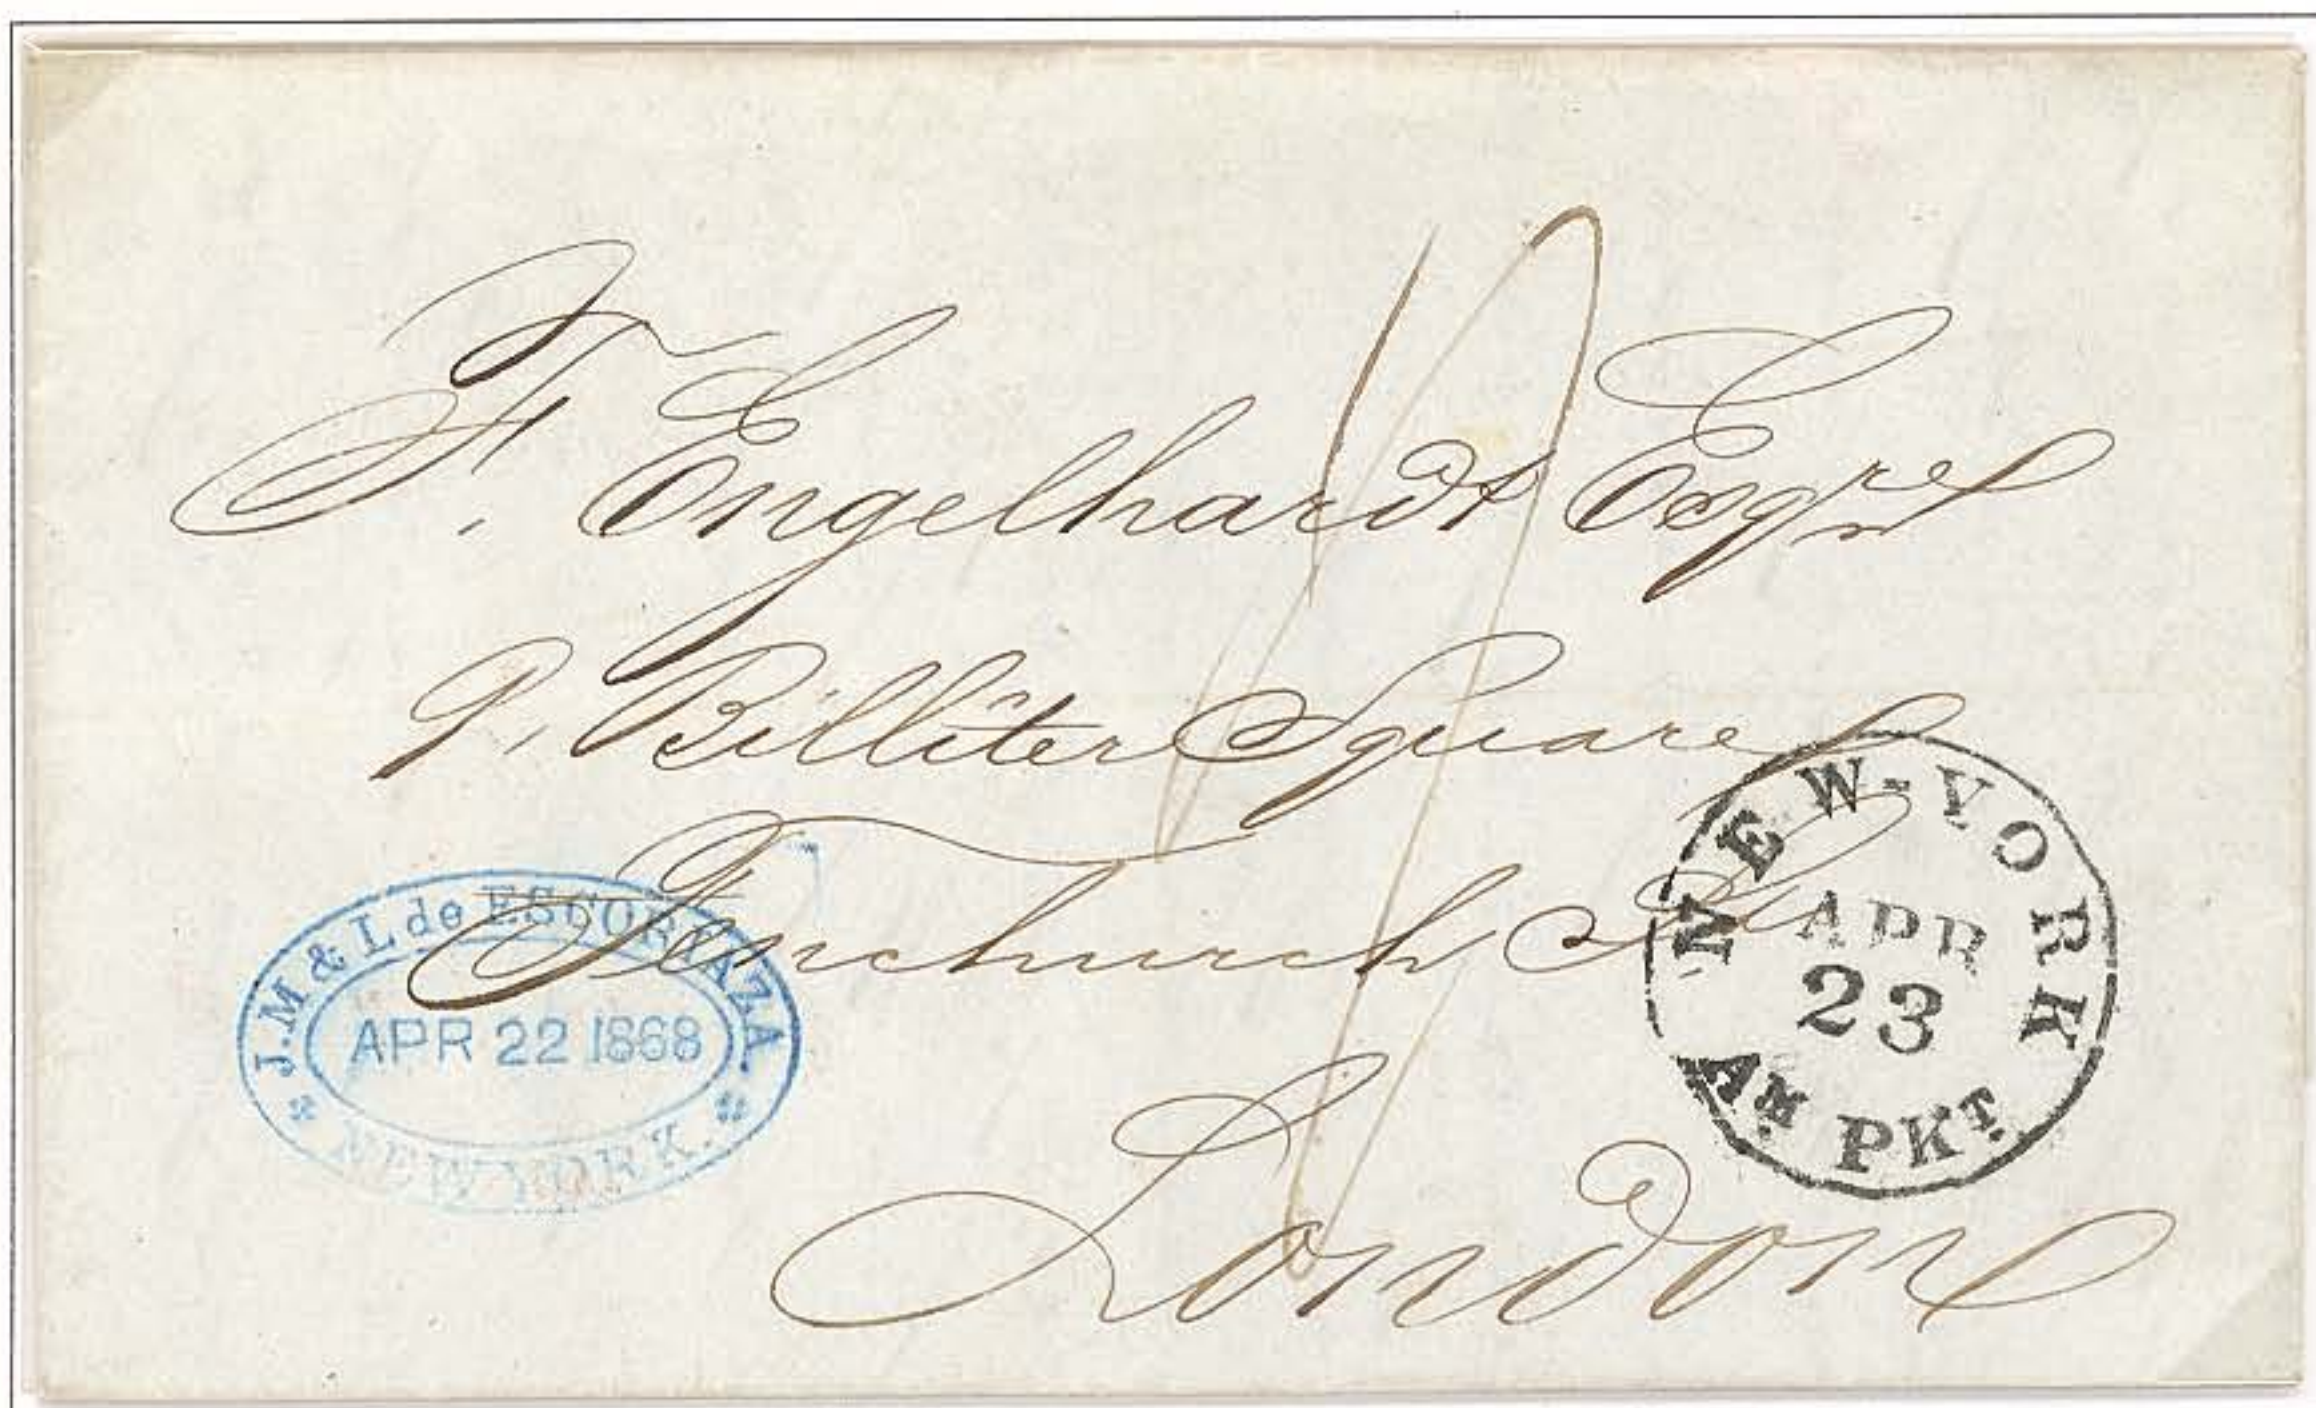 F. Engelhardt Esqre
9, Billiter Square
Fenchurch St
London
J. M & L de ESCORIAZA.
APR 22 1868
NEW YORK.
NEW-YORK
APR
23
AM. PKT.